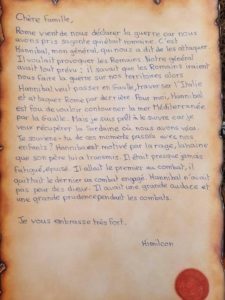 Chère Famille,
Rome vient de nous déclarer la guerre car nous
avons pris sagonte qui était romaine. C'est
Hannibal, mon général, qui nous a dit de les attaquer
Il voulait provoquer les Romains. Notre général
avait tout prévu : il savait que les Romains iraient
nous faire la guerre sur nos territoires alors
Hannibal veut passer en Gaule, traverser l'Italie
et attaquer Rome par derrière. Pour moi, Hannibal
est fou de vouloir contourner la mer Méditerranée
par la Gaulle. Mais je suis prêt à le suivre car je
veux récupérer la Sardaine où nous avons vécu.
Te souviens-tu de ces moments passés avec nos
enfants ? Hannibal est motivé par la rage, la haine
que son père lui a transmis. Il était presque jamais
fatigué, épuisé. Il allait le premier au combat, il
quittait le dernier un combat engagé. Hannibal n'avait
pas peur des dieux. Il avait une grande audace et
une grande prudence pendant les combats.
Je vous embrasse très fort.
Himilcon